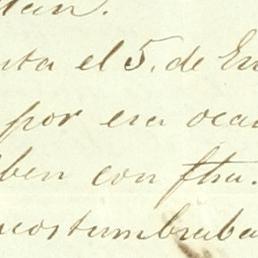 el 5. de En
por era oca
ben con fha.
costumbraba